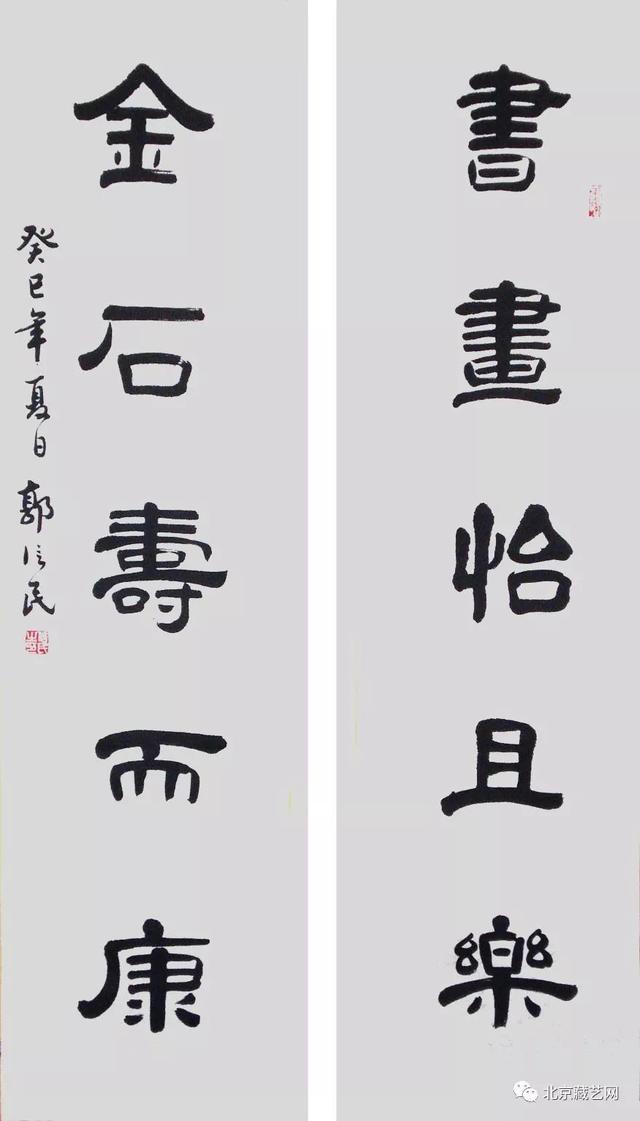 書畫怡且樂
金石壽而康
癸巳年夏日 郭信民
北京藏艺网